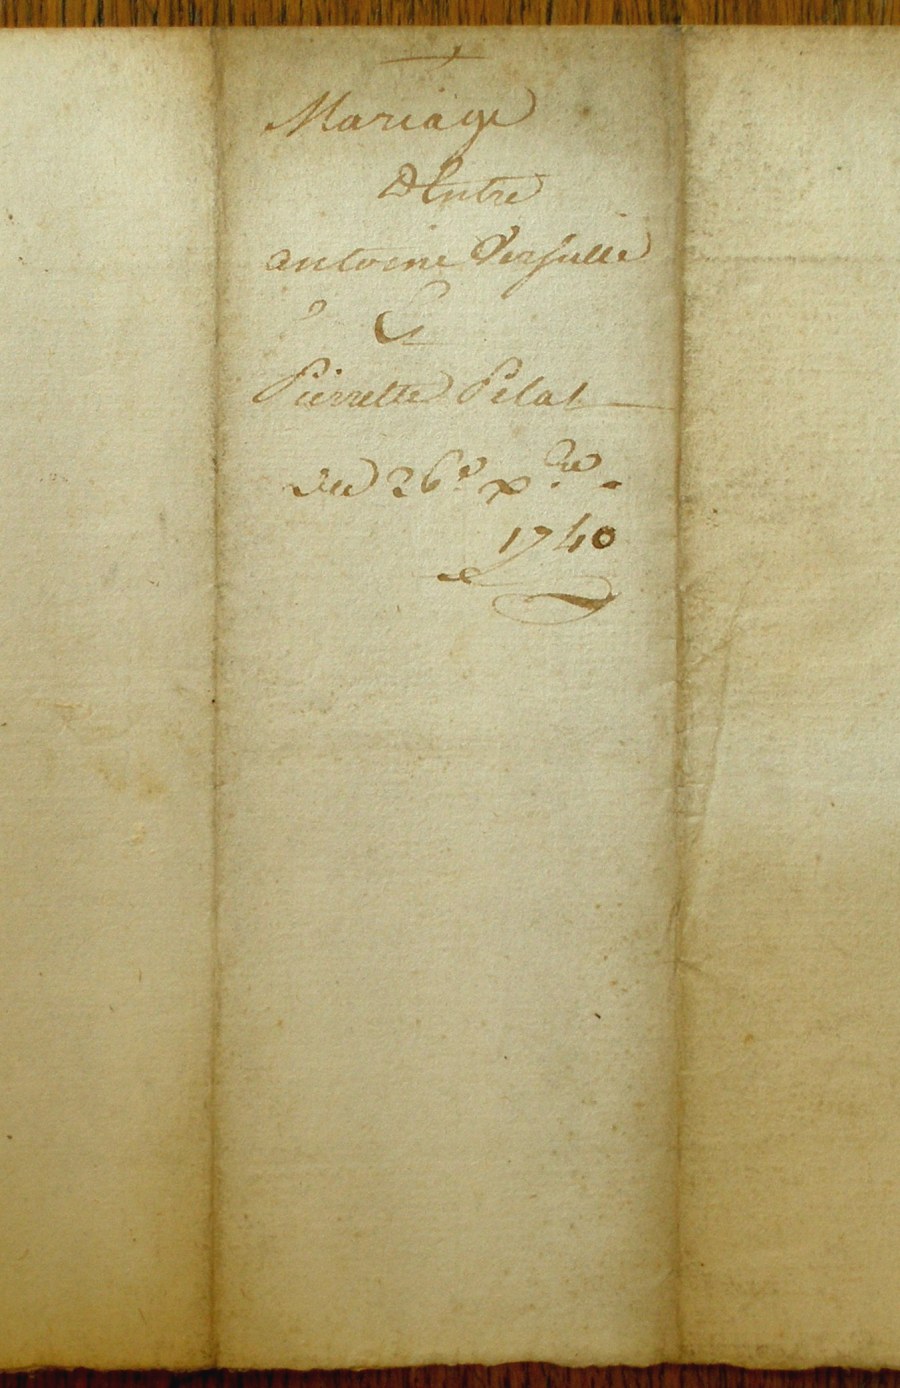 Mariage
D'Entre
antoine Versulle
Et
Pierrette Pilat
du 26e xbre
1740